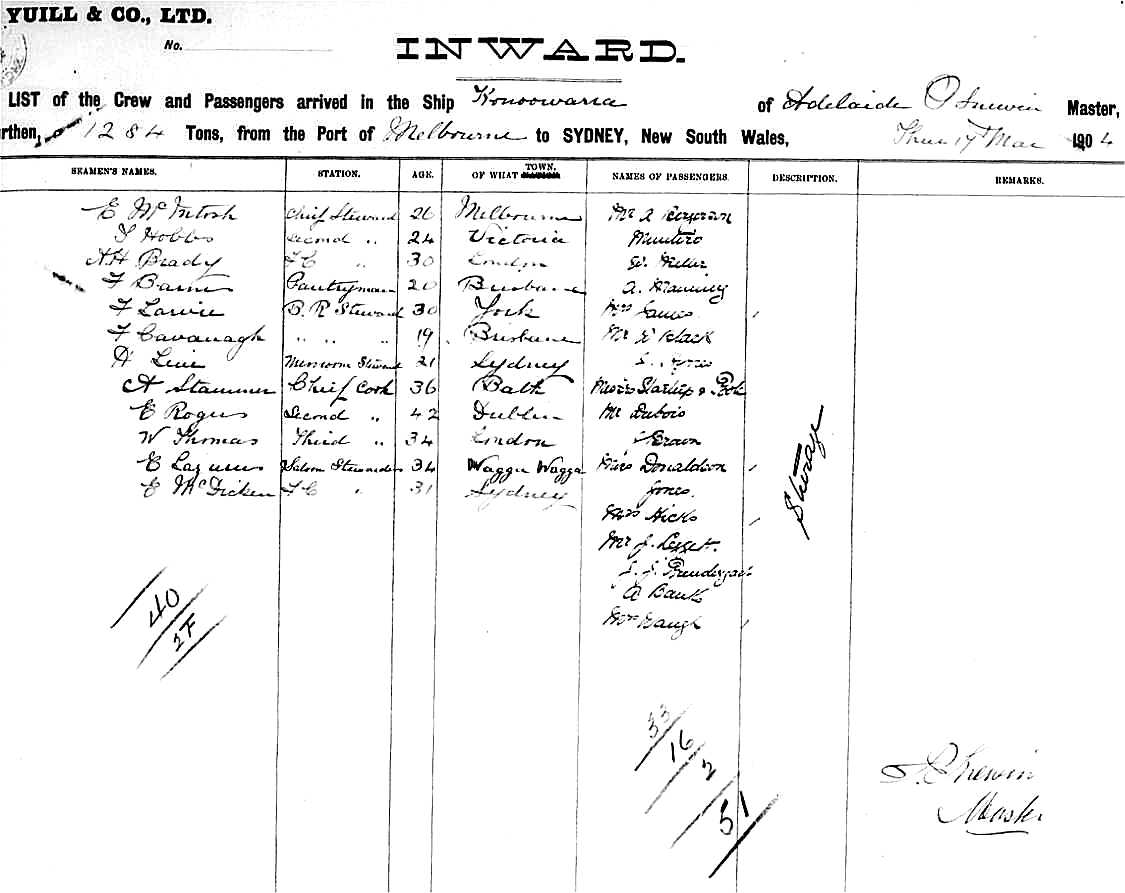 YUILL & CO., LTD.
No.
INWARD.
LIST of the Crew and Passengers arrived in the Ship Konoowarra of Adelaide Master,
rthen, 1284 Tons, from the Port of Melbourne to SYDNEY, New South Wales, Thur 17 Mar 1904
SEAMEN'S NAMES. STATION. AGE. OF WHAT TOWN. NAMES OF PASSENGERS. DESCRIPTION. REMARKS.
E McIntosh Chief Steward 26 Melbourne Mr A
Hobbs Second " 24 Victoria
A H Brady F C " 30 London W. Miller
F Pantryman 20 Brisbane A. Manning
F B. R Steward 30 York Mrs James
F Cavanagh " " " 19 Brisbane Mr Black
H Messroom Steward 21 Sydney
A Stammer Chief Cook 36 Bath Messrs Startup &
E Rogers Second " 42 Dublin Mr Dubois
W Thomas Third " 34 London Brown
E Saloon Stewardess 34 Wagga Wagga Miss Donaldson
E McDicken F C " 31 Sydney Jones.
Mrs Hicks
Mr J.
A Banks
Mrs Waugh
Steerage
40
2F
33
16
2
51
Master